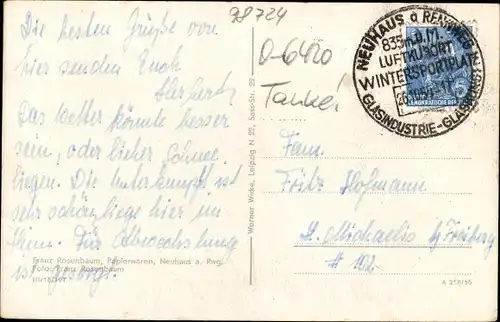 98724
Die besten Grüße von
hier senden Euch
Herbert
Das Wetter könnte besser
sein, oder lieber Schnee
liegen. Die Unterkunft ist
sehr schön, liege hier im
Heim. Für Abwechslung
ist gesorgt.
Franz Rosenbaum, Papierwaren, Neuhaus a. Rwg.
Foto: Franz Rosenbaum
Werner Wirke, Leipzig N 22, Sasstr. 22
O-6420
NEUHAUS a RENNWEG
835 m ü. M.
LUFTKURORT
WINTERSPORTPLATZ
GLASINDUSTRIE-GLASKUNST
DEMOKRATISCHE
Fam.
Fritz Hofmann
St. Michaelis b/ Freiberg
# 102.
A 358/55